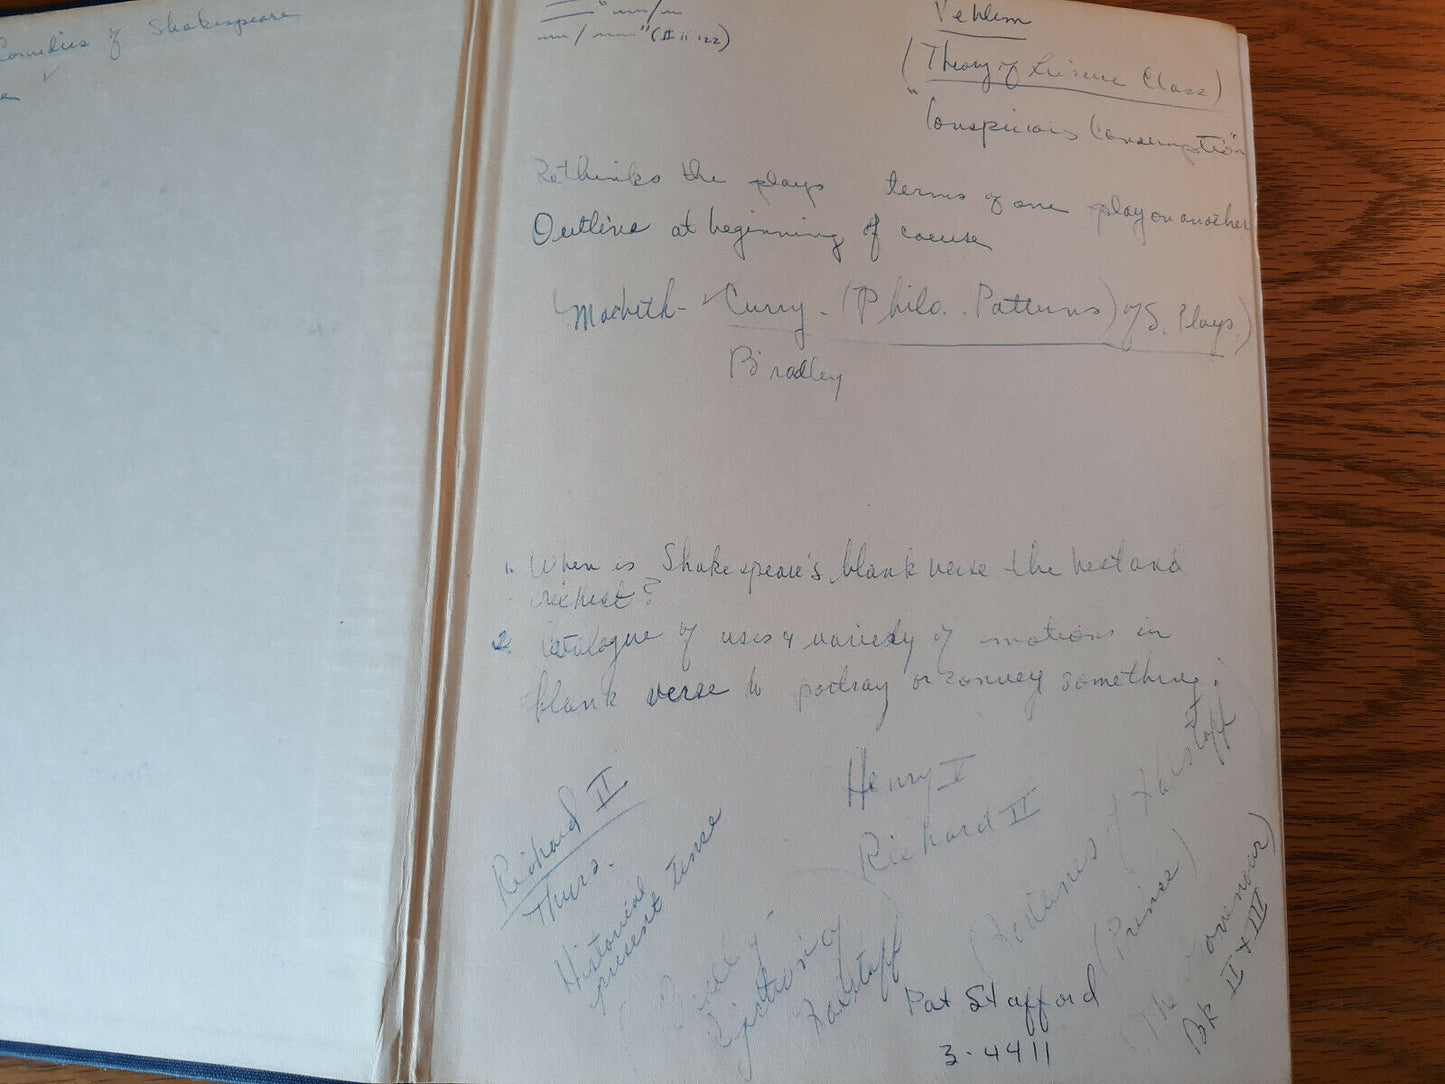 Comedies of Shakespeare
"(II ii 122)
Veblen
(Theory of Leisure Class)
"Conspicuous Consumption"
Rethinks the plays terms of one play on another
Outline at beginning of course
Macbeth - Curry - (Philo. Patterns) of S. Plays.)
Bradley
When is Shakespeare's blank verse the best and
richest?
2. Catalogue of uses & variety of emotions in
blank verse to portray or convey something.
Richard II
Thurs.
Historical
present tense
Henry V
Richard II
Bradley -
Rejection of
Falstaff
of Falstaff
(Prince)
Pat Stafford
3-4411
(The Governour)
Bk II & III